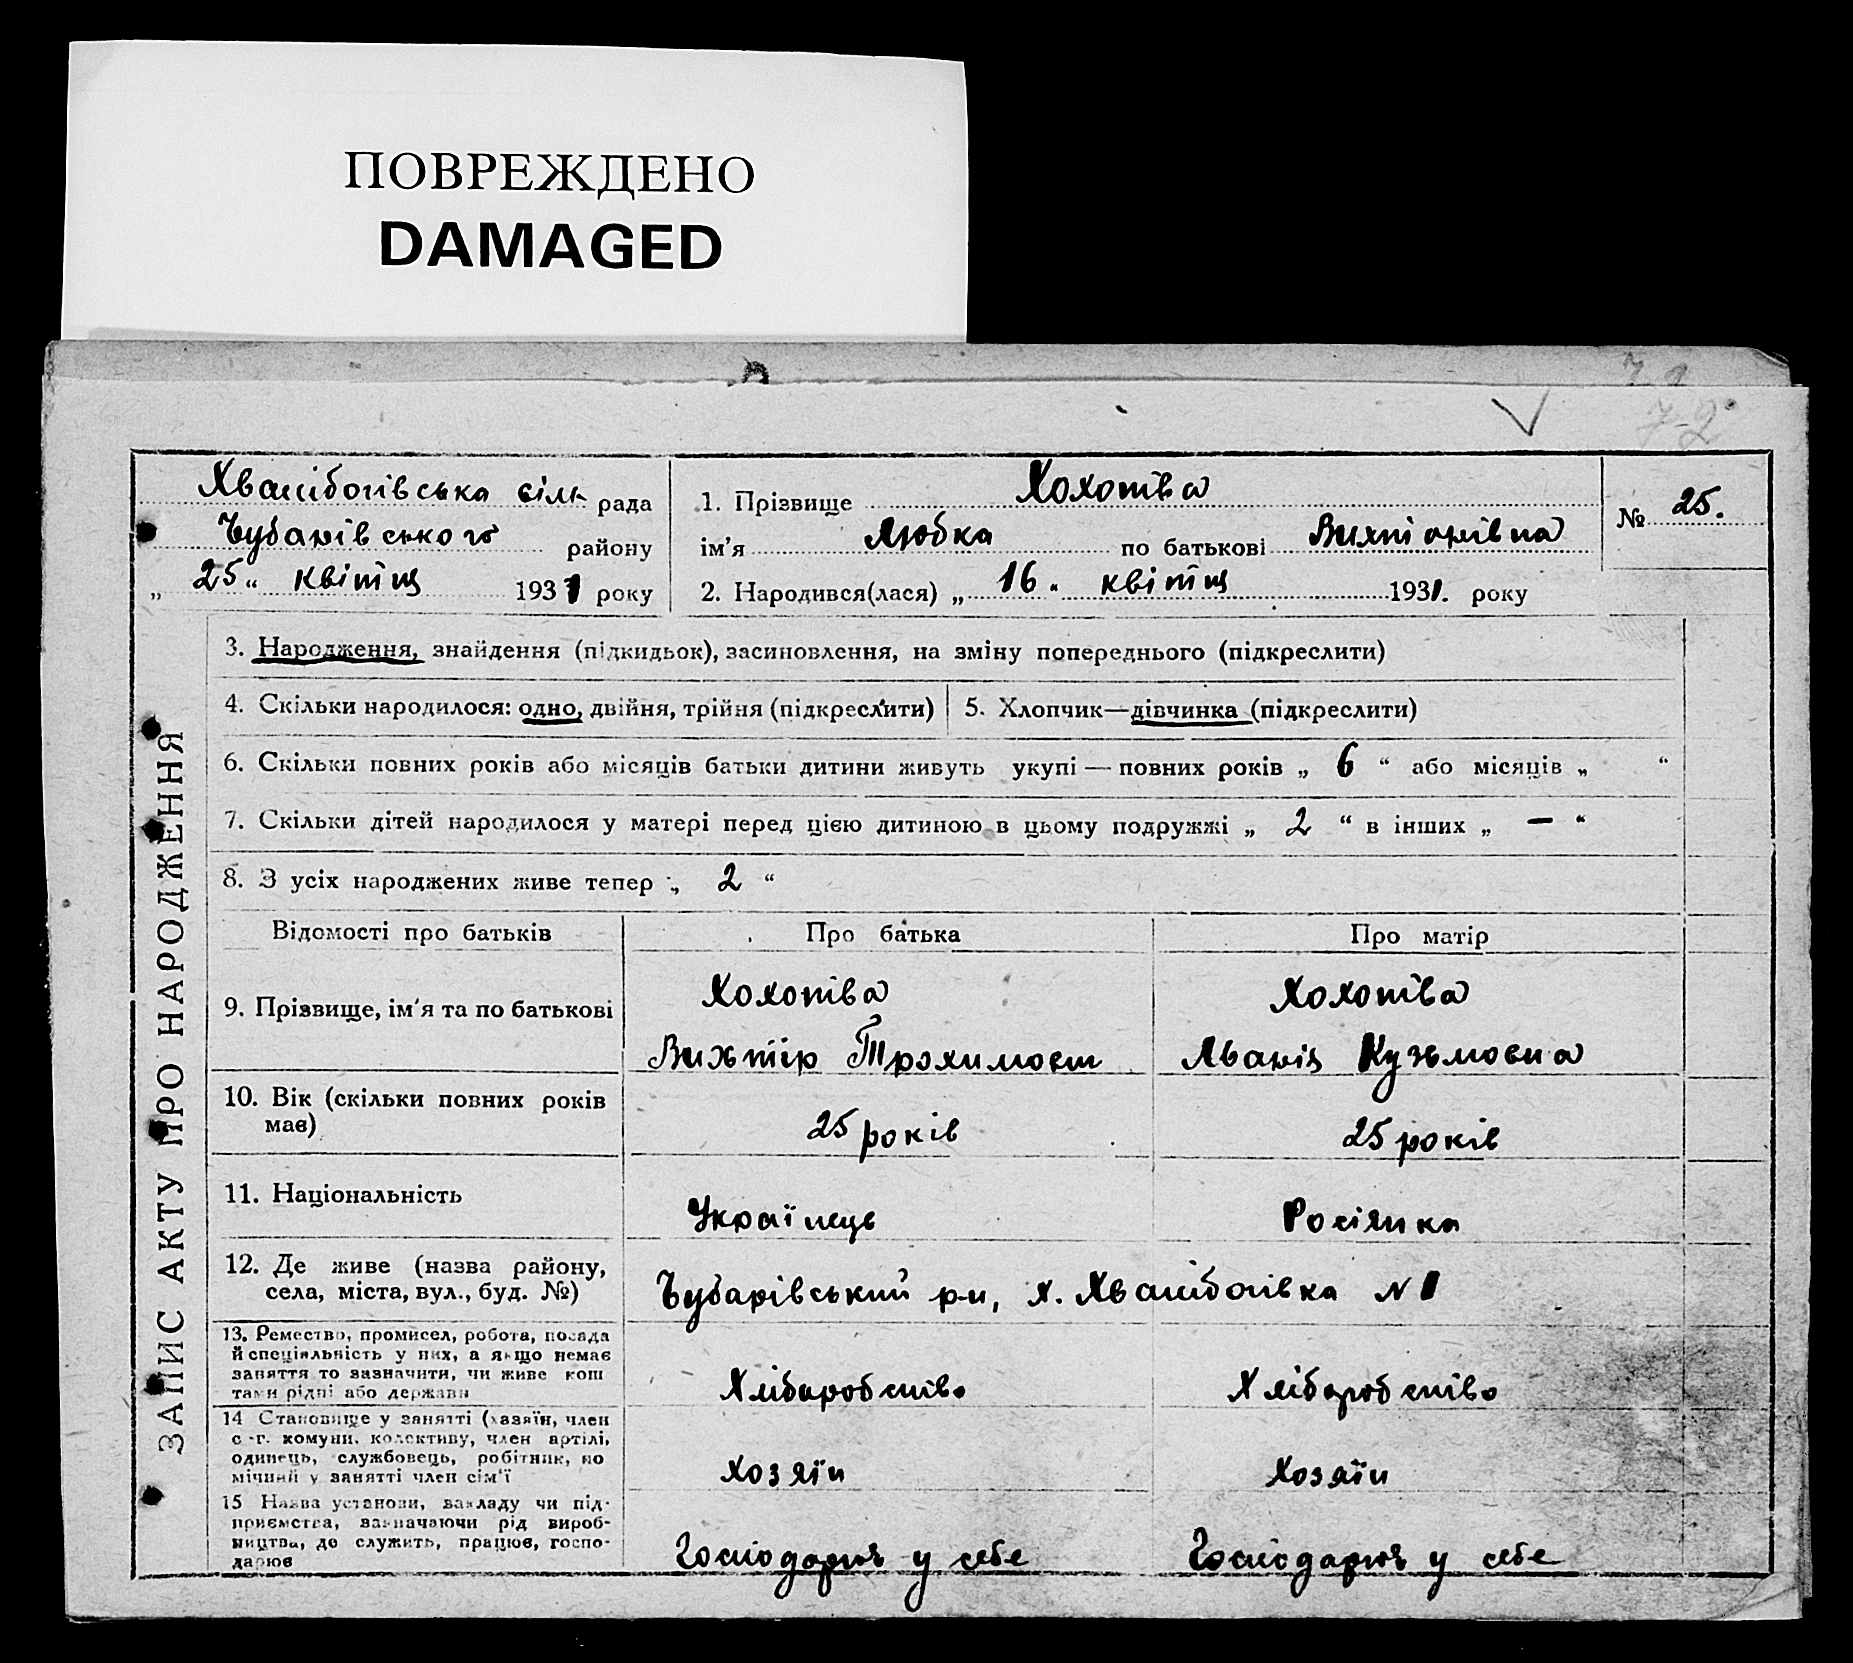 ПОВРЕЖДЕНО
DAMAGED
7-2
сіль рада
Чубарівського району
„ 25 “ квітня 1931 року
1. Прізвище Хохотва
ім'я Любка по батькові Вихторівна
2. Народився(лася) „ 16 „ квітня 1931. року
№ 25.
ЗАПИС АКТУ ПРО НАРОДЖЕННЯ
3. Народження, знайдення (підкидьок), засиновлення, на зміну попереднього (підкреслити)
4. Скільки народилося: одно, двійня, трійня (підкреслити)
5. Хлопчик—дівчинка (підкреслити)
6. Скільки повних років або місяців батьки дитини живуть укупі — повних років „ 6 “ або місяців „ “
7. Скільки дітей народилося у матері перед цією дитиною в цьому подружжі „ 2 “ в інших „ — “
8. З усіх народжених живе тепер „ 2 “
Відомості про батьків Про батька Про матір
9. Прізвище, ім'я та по батькові
Хохотва Хохотва
Вихтір Трохимович Кузьмовна
10. Вік (скільки повних років
має)
25 років 25 років
11. Національність Українець Росіянка
12. Де живе (назва району,
села, міста, вул., буд. №)
Чубарівський р-н, х. N 1
13. Ремество, промисел, робота, посада
й спеціяльність у них, а якщо немає
заняття то зазначити, чи живе кош
тами рідні або держави
Хліборобство Хліборобство
14 Становище у занятті (хазяїн, член
с.-г. комуни, колективу, член артілі,
одинець, службовець, робітник, по
мічний у занятті член сім'ї
хозяїн хозяїн
15 Назва установи, закладу чи під-
приємства, зазначаючи рід вироб-
ництва, де служить, працює, госпо-
дарює
Господарює у себе Господарює у себе